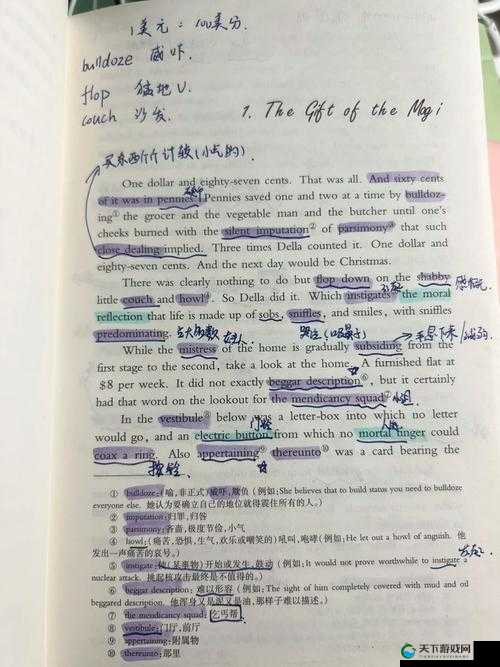 1美元 = 100美分.
bulldoze 威吓.
flop 猛地
couch 沙发.
1. The Gift of the Magi
One dollar and eighty-seven cents. That was all. And sixty cents
of it was in pennies. Pennies saved one and two at a time by bulldoz-
ing① the grocer and the vegetable man and the butcher until one's
cheeks burned with the silent imputation② of parsimony③ that such
close dealing implied. Three times Della counted it. One dollar and
eighty-seven cents. And the next day would be Christmas.
There was clearly nothing to do but flop down on the shabby
little couch and howl④. So Della did it. Which instigates⑤ the moral
reflection that life is made up of sobs, sniffles, and smiles, with sniffles
predominating. 占大多数 女主人
While the mistress of the home is gradually subsiding from the
first stage to the second, take a look at the home. A furnished flat at
$8 per week. It did not exactly beggar description⑥, but it certainly
had that word on the lookout for the mendicancy squad⑦.
In the vestibule⑧ below was a letter-box into which no letter
would go, and an electric button from which no mortal finger could
coax a ring. Also appertaining⑨ thereunto⑩ was a card bearing the
按铃
① bulldoze:(喻,非正式)威吓,欺负(例如:She believes that to build status you need to bulldoze
everyone else. 她认为要确立自己的地位就得震住所有的人。)
② imputation:归罪,归咎
③ parsimony:吝啬,极度节俭,小气
④ howl:(痛苦、恐惧、生气、欢乐或嘲笑的)吼叫,咆哮(例如:He let out a howl of anguish. 他
发出一声痛苦的哀号。)
⑤ instigate:使(某事物)开始或发生,鼓动(例如:It would not prove worthwhile to instigate a
nuclear attack. 挑起核攻击最终是不值得的。)
⑥ beggar description:难以形容(例如:The sight of him completely covered with mud and oil
beggared description. 他浑身又是泥又是油,那样子难以描述。)
⑦ the mendicancy squad:乞丐帮
⑧ vestibule:门厅,前厅
⑨ appertaining:附属物
⑩ thereunto:那里
天下游戏网